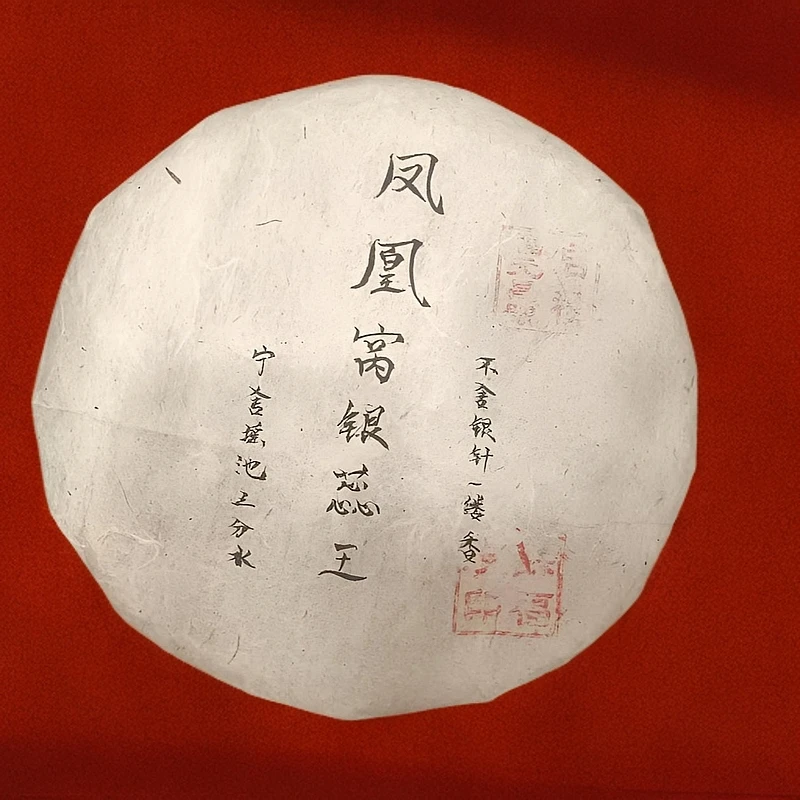 凤凰窝银蕊王
宁舍瑶池三分水
不舍银针一缕香